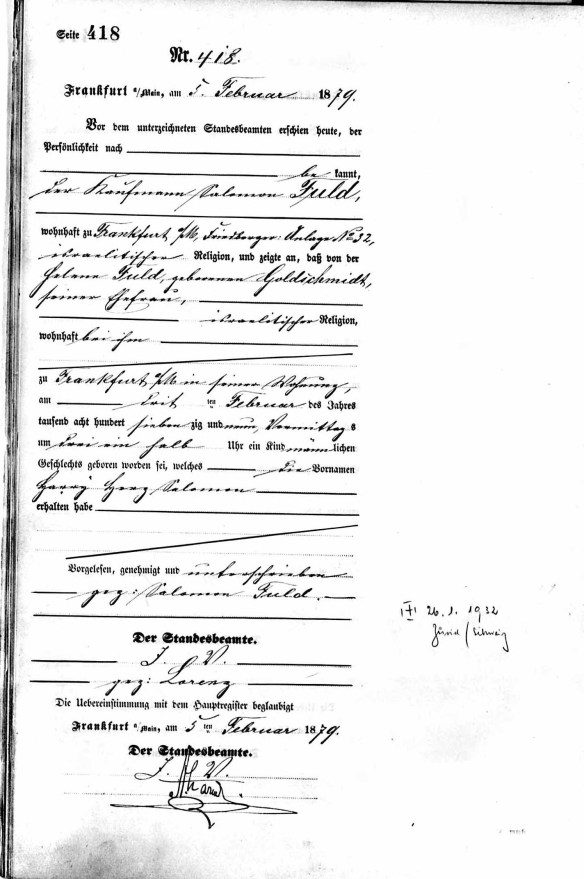 Seite 418
Nr. 418.
Frankfurt a/Main, am 5. Februar 1879.
Vor dem unterzeichneten Standesbeamten erschien heute, der
Persönlichkeit nach
be kannt,
der Kaufmann Salomon Fuld,
wohnhaft zu Frankfurt a/M, Friedberger: Anlage No 32,
israelitischer Religion, und zeigte an, daß von der
Helene Fuld, geborenen Goldschmidt,
seiner Ehefrau,
israelitischer Religion,
wohnhaft bei ihm
zu Frankfurt a/M in seiner Wohnung,
am drit ten Februar des Jahres
tausend acht hundert sieben zig und neun, Vormittag s
um drei ein halb Uhr ein Kind männlichen
Geschlechts geboren worden sei, welches die Vornamen
Harry Herz Salomon
erhalten habe
Vorgelesen, genehmigt und unterschrieben
gez: Salomon Fuld.
Der Standesbeamte.
J. V.
gez: Lorenz
Die Uebereinstimmung mit dem Hauptregister beglaubigt
Frankfurt a/Main, am 5 ten Februar 1879.
Der Standesbeamte.
J. V.
26. 1. 1932